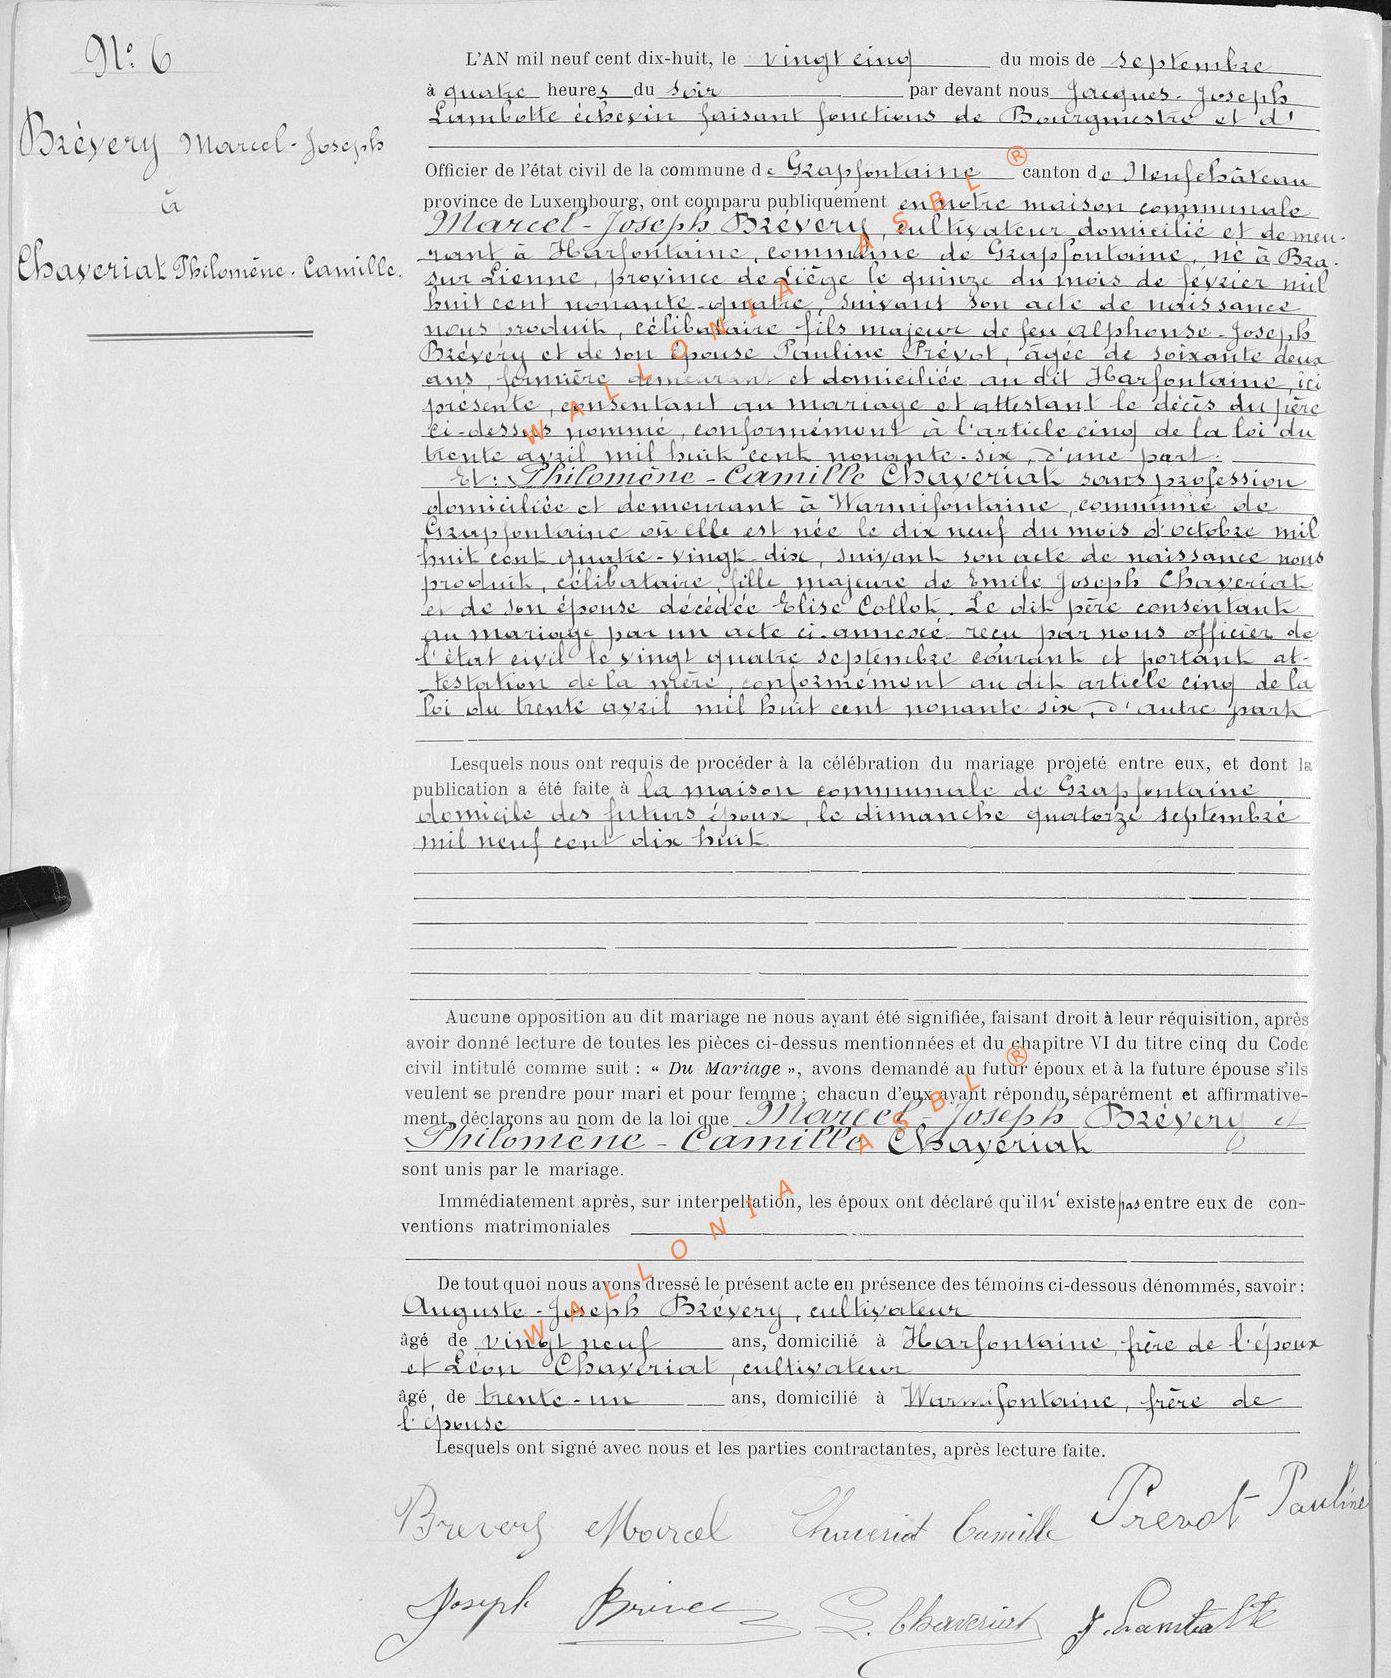 N.° 6
Brévery Marcel-Joseph
à
Chaveriat Philomène-Camille.
L'AN mil neuf cent dix-huit, le vingt cinq du mois de septembre
à quatre heures du soir par devant nous Jacques-Joseph
Lambotte échevin faisant fonctions de Bourgmestre et d'
Officier de l'état civil de la commune de Grapfontaine canton de Neufchâteau
province de Luxembourg, ont comparu publiquement en notre maison communale
Marcel-Joseph Brévery, cultivateur domicilié et demeu-
rant à Harfontaine, commune de Grapfontaine, né à Bra-
sur Lienne, province de Liège le quinze du mois de février mil
huit cent nonante-quatre, suivant son acte de naissance
nous produit, célibataire fils majeur de feu Alphonse-Joseph
Brévery et de son épouse Pauline Prévot, âgée de soixante deux
ans, fermière demeurant et domiciliée au dit Harfontaine, ici
présente, consentant au mariage et attestant le décès du père
ci-dessus nommé, conformément à l'article cinq de la loi du
trente avril mil huit cent nonante-six, d'une part.
Et: Philomène-Camille Chaveriat sans profession
domiciliée et demeurant à Warmifontaine, commune de
Grapfontaine où elle est née le dix neuf du mois d'octobre mil
huit cent quatre-vingt-dix, suivant son acte de naissance nous
produit, célibataire, fille majeure de Emile Joseph Chaveriat
et de son épouse décédée Elise Collot. Le dit père consentant
au mariage par un acte ci-annexé reçu par nous officier de
l'état civil le vingt quatre septembre courant et portant at-
testation de la mère, conformément au dit article cinq de la
loi du trente avril mil huit cent nonante six, d'autre part
Lesquels nous ont requis de procéder à la célébration du mariage projeté entre eux, et dont la
publication a été faite à la maison communale de Grapfontaine
domicile des futurs époux, le dimanche quatorze septembre
mil neuf cent dix huit.
Aucune opposition au dit mariage ne nous ayant été signifiée, faisant droit à leur réquisition, après
avoir donné lecture de toutes les pièces ci-dessus mentionnées et du chapitre VI du titre cinq du Code
civil intitulé comme suit : « Du Mariage », avons demandé au futur époux et à la future épouse s'ils
veulent se prendre pour mari et pour femme ; chacun d'eux ayant répondu séparément et affirmative-
ment, déclarons au nom de la loi que Marcel-Joseph Brévery et
Philomène-Camille Chaveriat
sont unis par le mariage.
Immédiatement après, sur interpellation, les époux ont déclaré qu'il n'existe pas entre eux de con-
ventions matrimoniales
De tout quoi nous avons dressé le présent acte en présence des témoins ci-dessous dénommés, savoir :
Auguste-Joseph Brévery, cultivateur
âgé de vingt neuf ans, domicilié à Harfontaine, frère de l'époux
et Léon Chaveriat, cultivateur
âgé de trente-un ans, domicilié à Warmifontaine, frère de
l'épouse
Lesquels ont signé avec nous et les parties contractantes, après lecture faite.
Brevery Marcel Chaveriat Camille Prevot Pauline
Joseph L. Chaveriat J. Lambotte
WALLONIA ASBL ®
WALLONIA ASBL ®